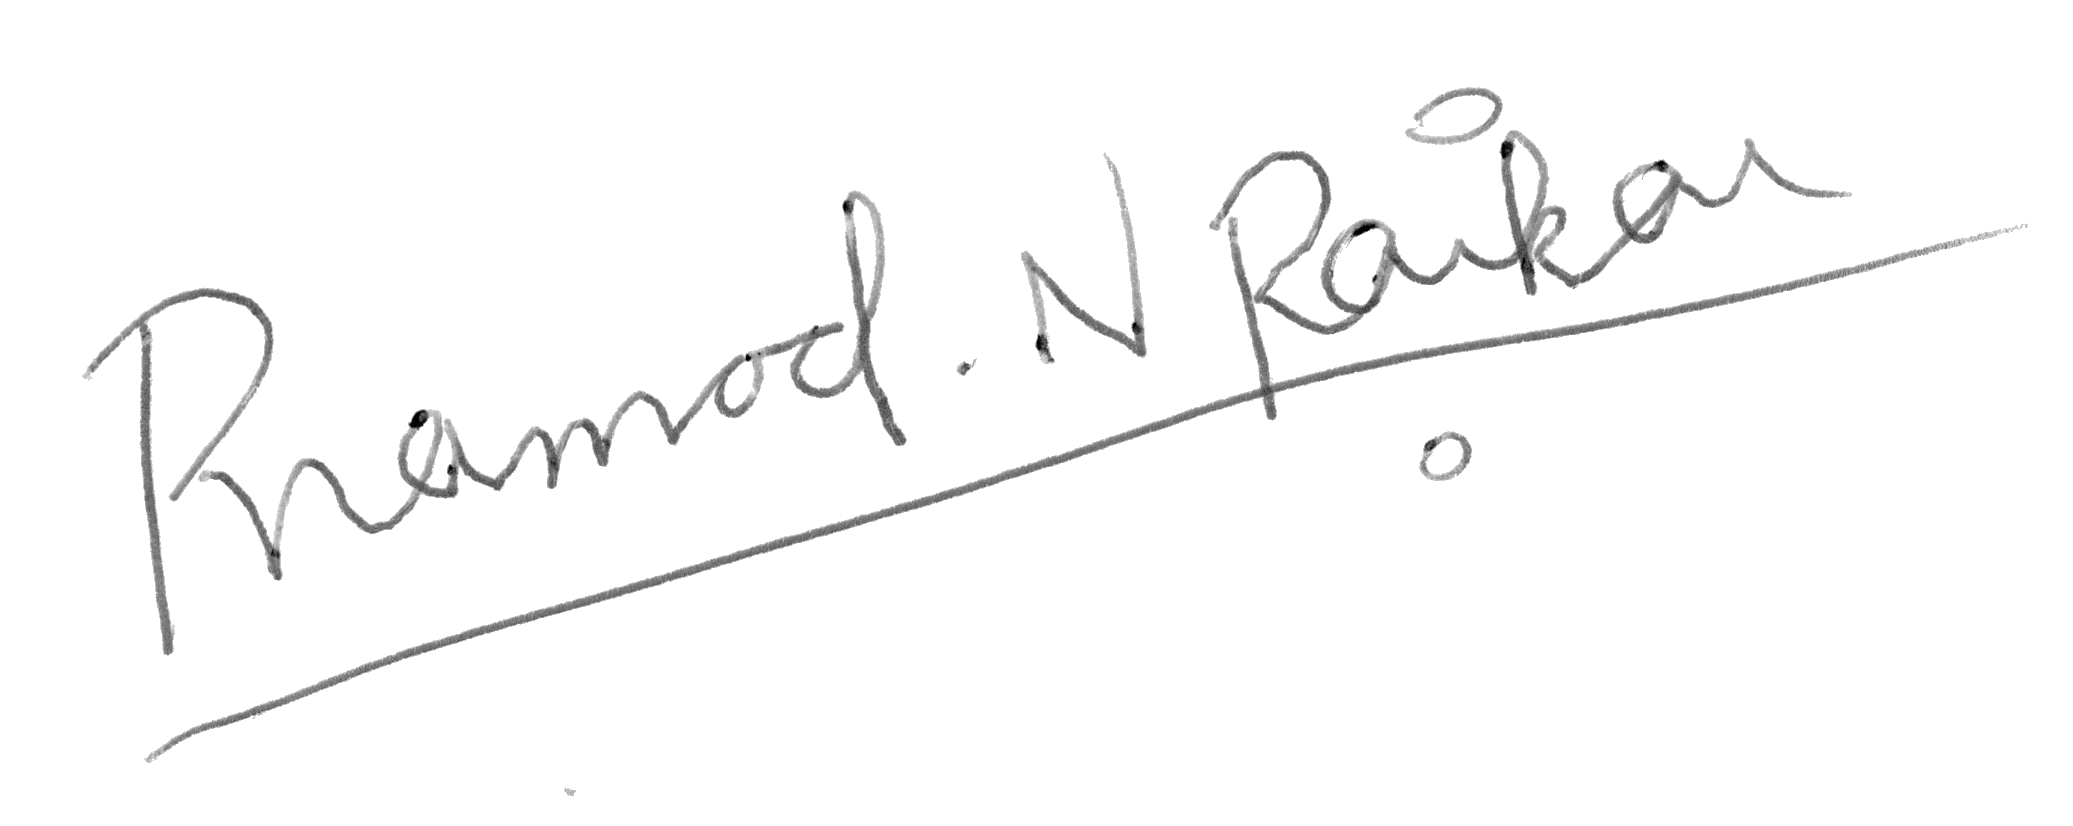 Pramod. N Raikar